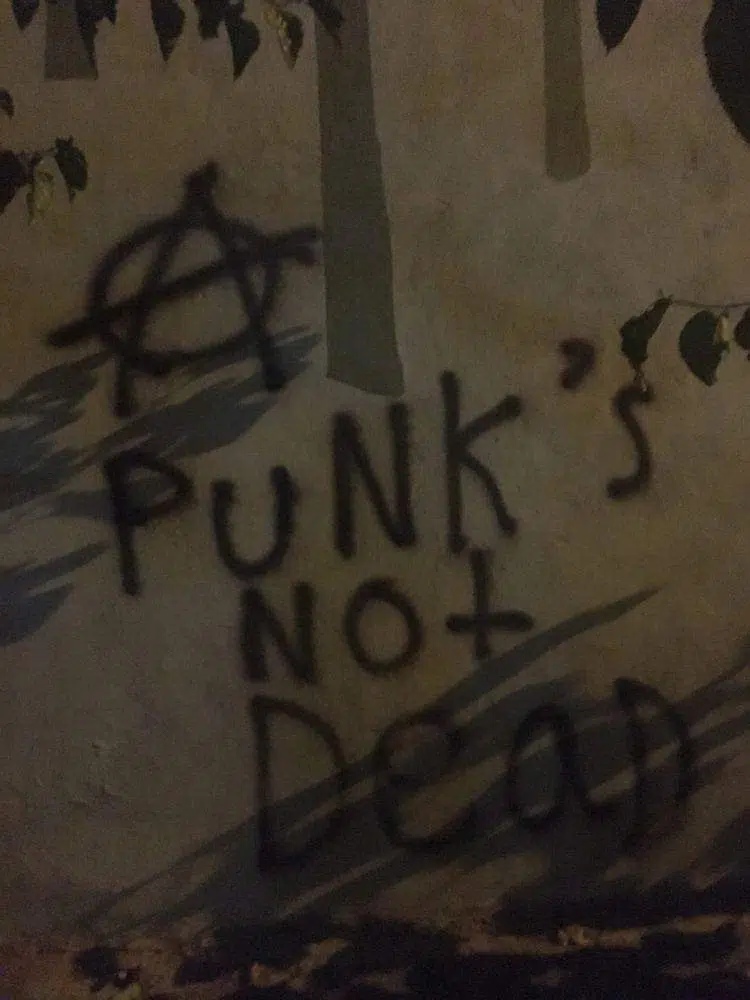 PUNK's
NOt
DeaD